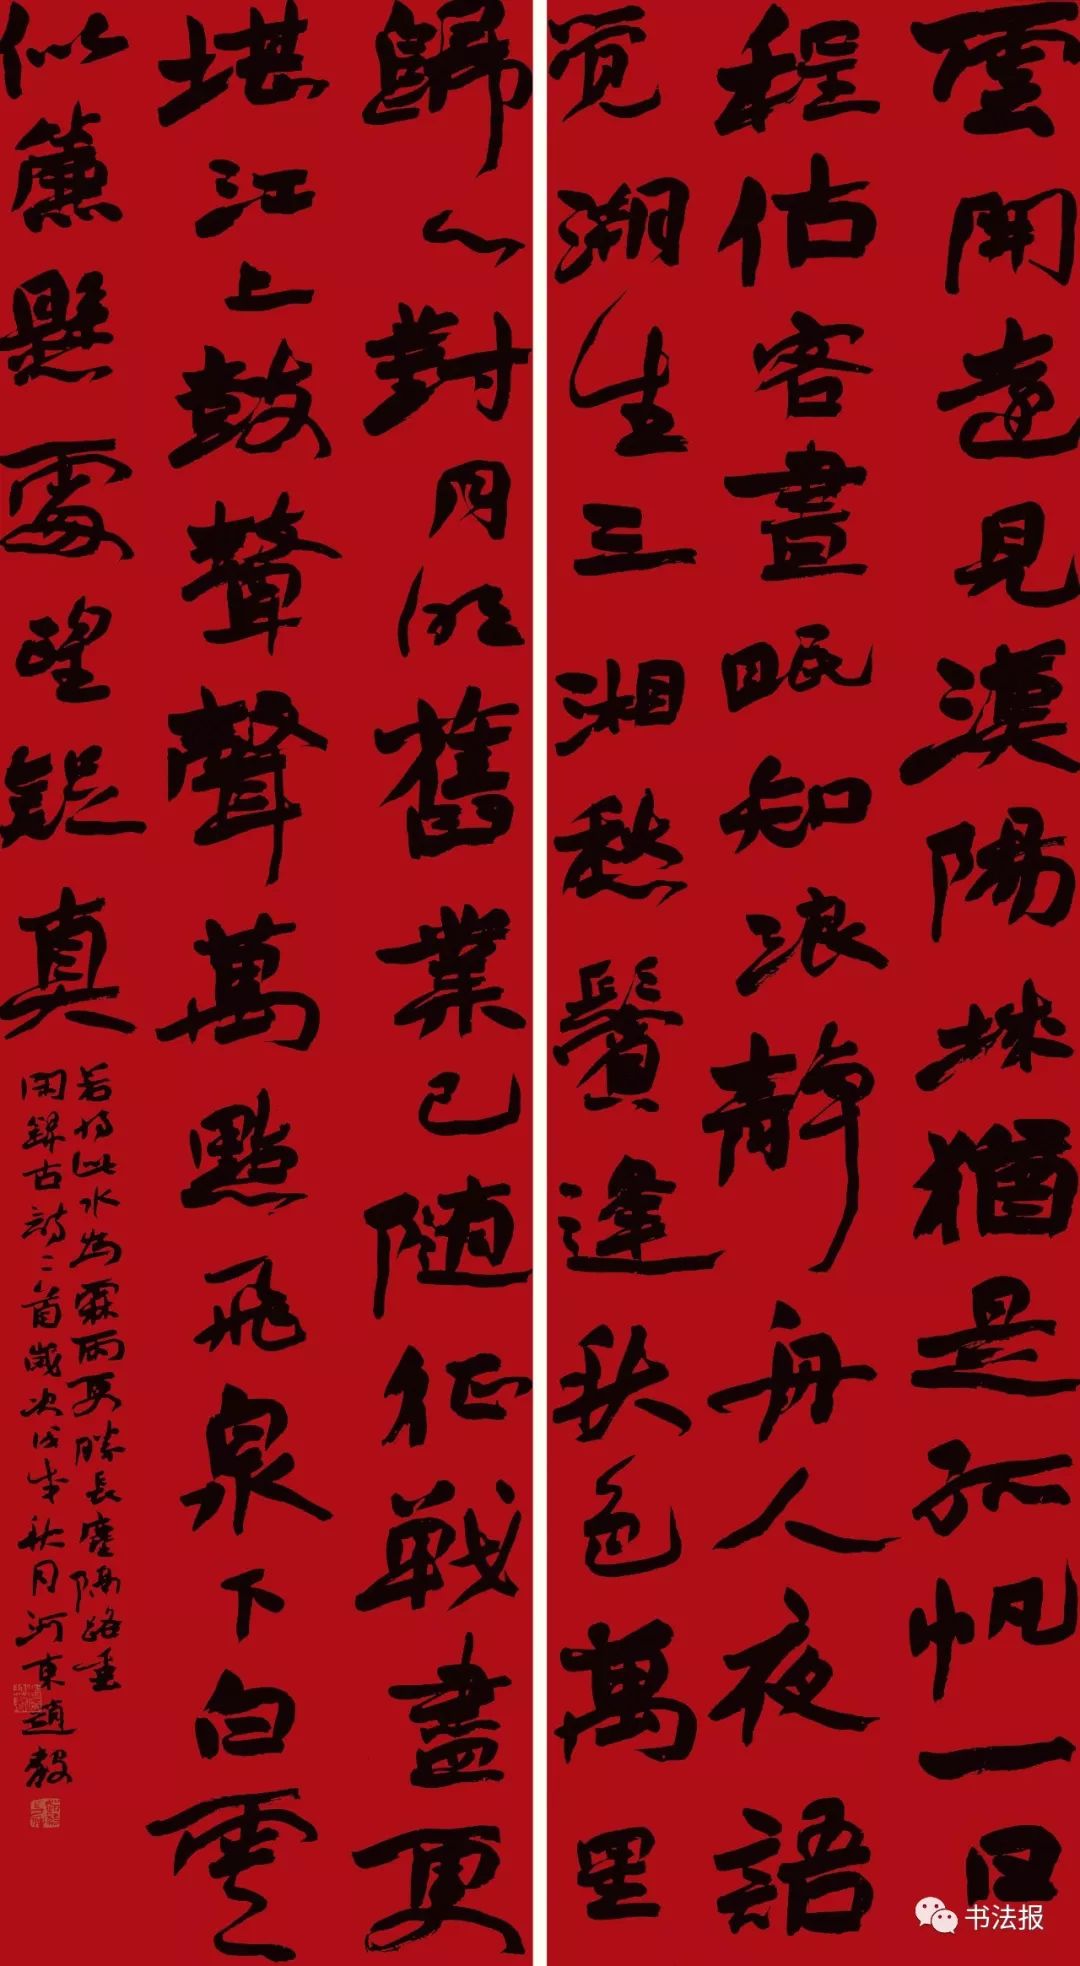 雲開遠見漢陽城猶是孤帆一日
程估客晝眠知浪静舟人夜語
觉潮生三湘愁鬢逢秋色萬里
歸心對月明舊業已随征戰盡更
堪江上鼓鼙聲萬點飛泉下白雲
似簾懸處望疑真
若將此水為霖雨更勝長塵隔路垂
閑錄古詩二首歲次戊戌秋月河東趙毅
书法报